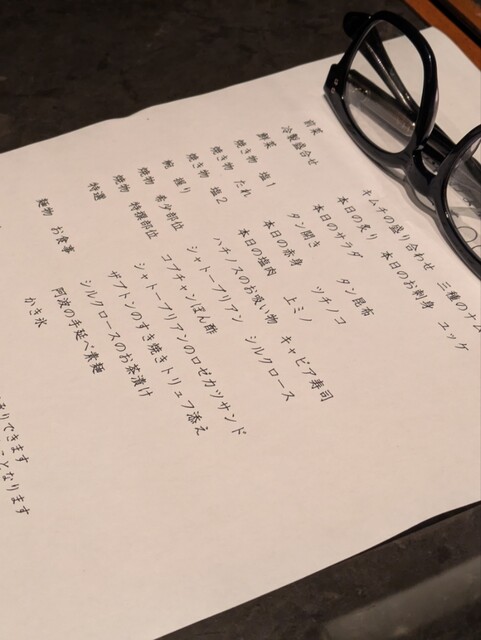 前菜 キムチの盛り合わせ 三種のナム
冷製盛合せ 本日の炙り 本日のお刺身 ユッケ
鮮菜 本日のサラダ
焼き物 塩1 タン開き タン昆布
焼き物 たれ 本日の赤身 ツチノコ
焼き物 塩2 本日の塩肉 上ミノ
椀 握り ハチノスのお吸い物 キャビア寿司
焼物 希少部位 シャトーブリアン シルクロース
焼物 特撰部位 コプチャンぽん酢
特選 シャトーブリアンのロゼカツサンド
ザブトンのすき焼きトリュフ添え
シルクロースのお茶漬け
麺物 お食事 阿波の手延べ素麺
かき氷
りできます
となります